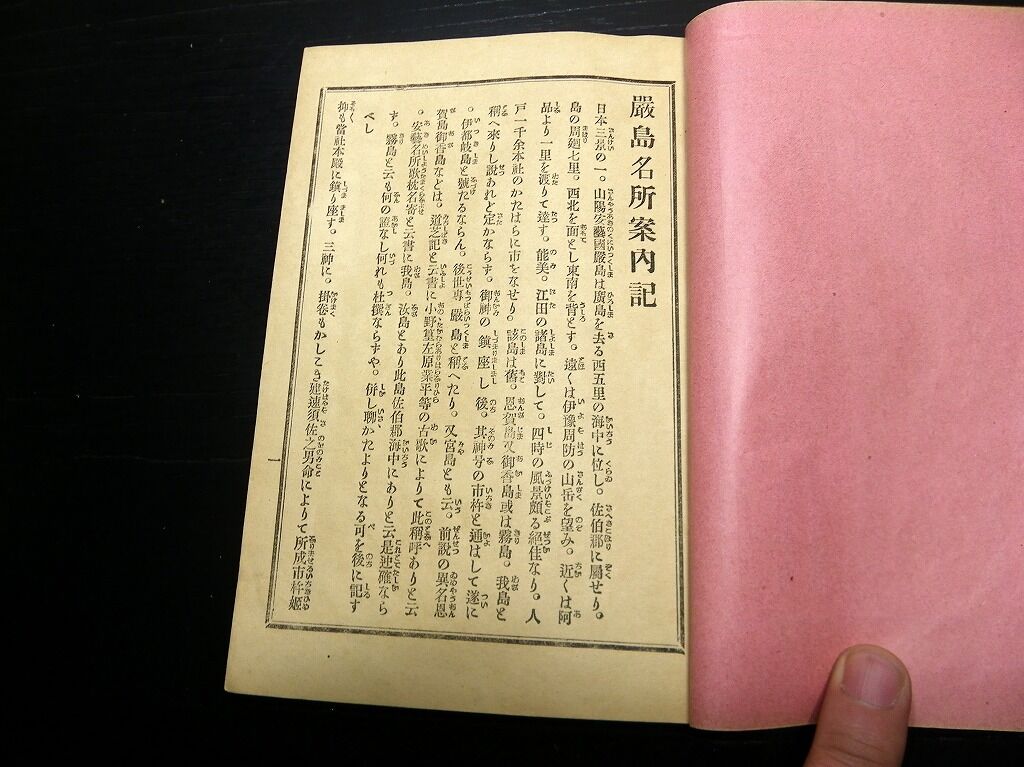 嚴島名所案內記
日本三景の一。山陽安藝國嚴島は廣島を去る西五里の海中に位し。佐伯郡に屬せり。
島の周廻七里。西北を面とし東南を背とす。遠くは伊豫周防の山岳を望み。近くは阿
品より一里を渡りて達す。能美。江田の諸島に對して。四時の風景頗る絕佳なり。人
戶一千余本社のかたはらに市をなせり。該島は舊。恩賀島又御香島或は霧島。我島と
稱へ來りし說あれど定かならず。御神の鎮座し後。其神号の市杵と通はして遂に
。伊都岐島と號たるならん。後世專嚴島と稱へたり。又宮島とも云。前說の異名恩
賀島御香島などは。道芝記と云書に小野篁左原業平等の古歌によりて此稱呼ありと云
。安藝名所歌枕名寄と云書に我島。汝島とあり此島佐伯郡海中にありと云是違確なら
す。霧島と云も何の證なし何れも杜撰ならずや。併し聊かたよりとなる可を後に記す
べし
抑も當社本殿に鎮り座す。三神に。掛卷もかしこき建速須佐之男命によりて所成市杵姬
一